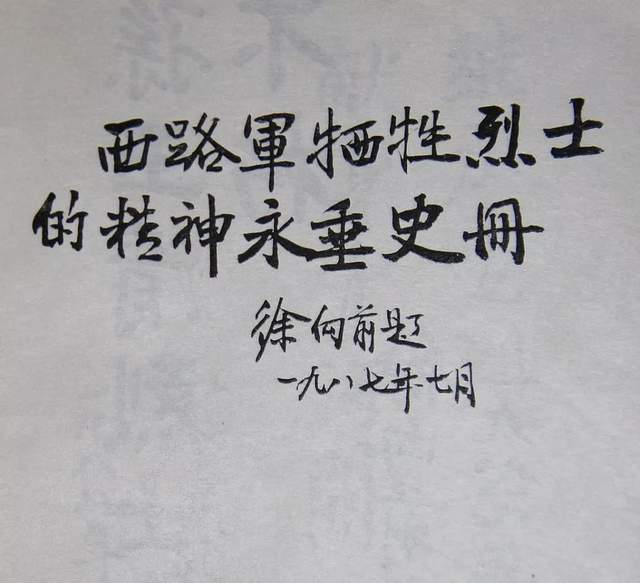 西路軍牺牲烈士
的精神永垂史冊
徐向前题
一九八七年七月